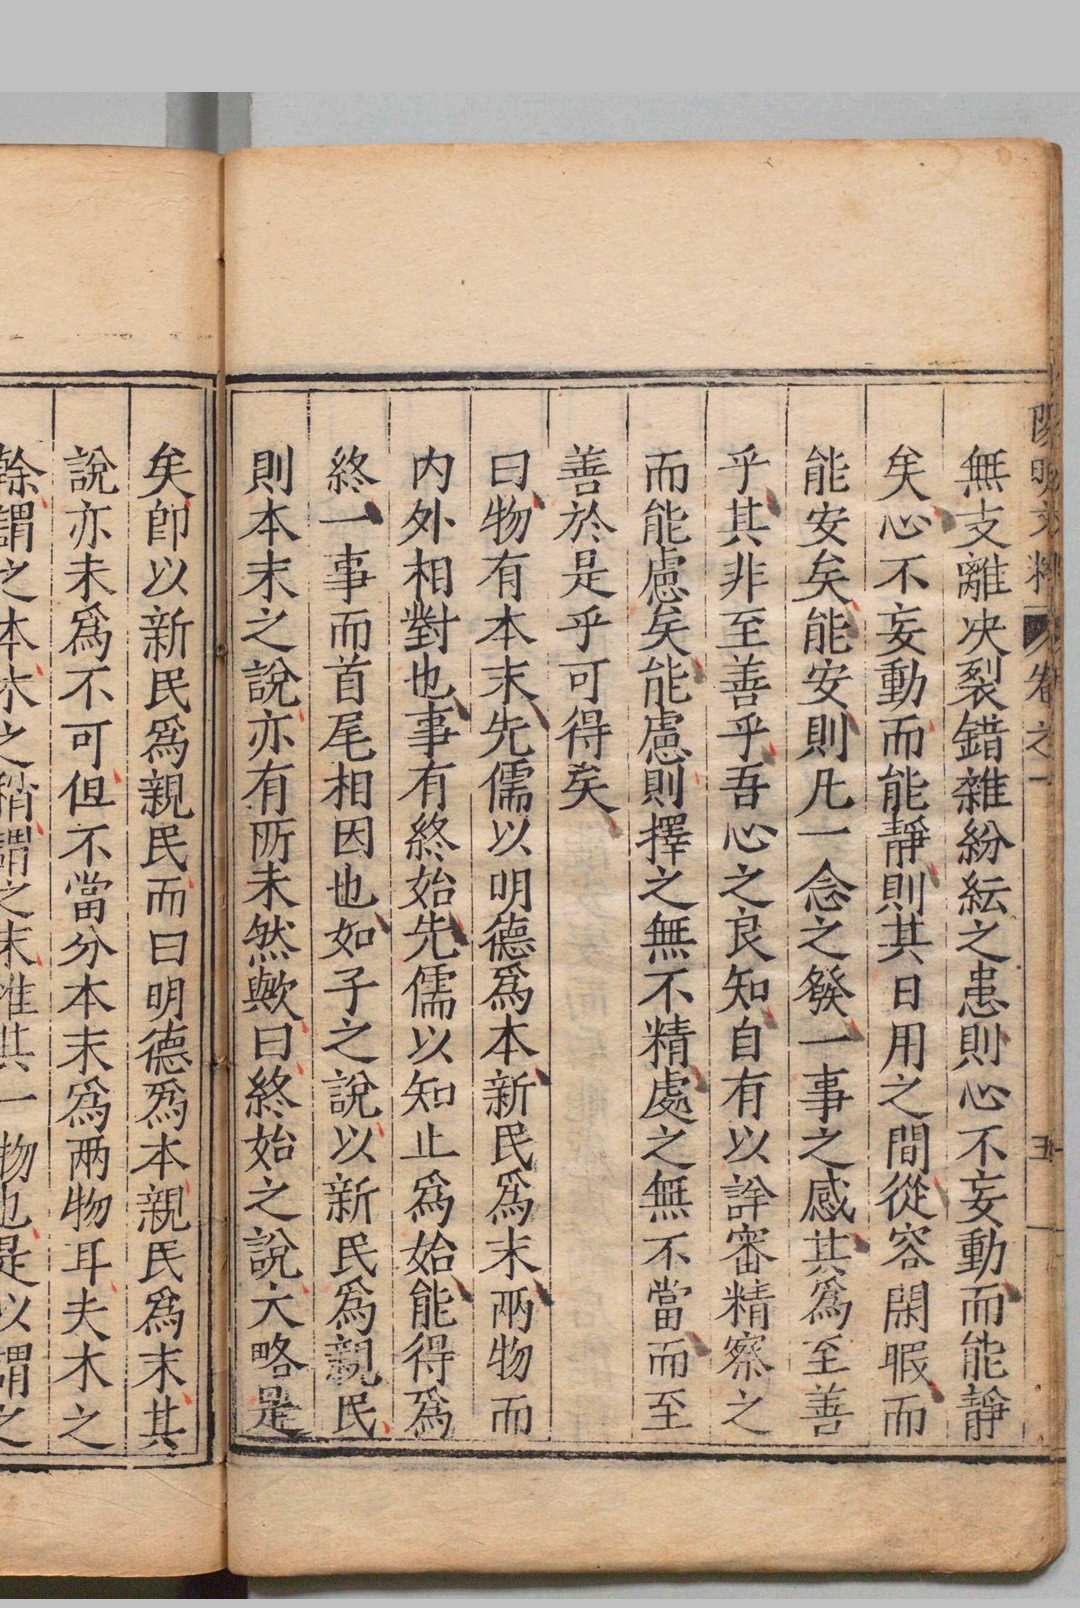 陽明文粹 卷之一 五
無支離决裂錯雜紛紜之患則心不妄動而能靜
矣心不妄動而能靜則其日用之間從容閑暇而
能安矣能安則凡一念之發一事之感其為至善
乎其非至善乎吾心之良知自有以詳審精察之
而能慮矣能慮則擇之無不精處之無不當而至
善於是乎可得矣
曰物有本末先儒以明德爲本新民爲末兩物而
内外相對也事有終始先儒以知止爲始能得爲
終一事而首尾相因也如子之說以新民爲親民
則本末之說亦有所未然歟曰終始之說大略是
矣卽以新民爲親民而曰明德爲本親民爲末其
說亦未爲不可但不當分本末爲兩物耳夫木之
榦謂之本木之稍謂之末惟其一物也是以謂之